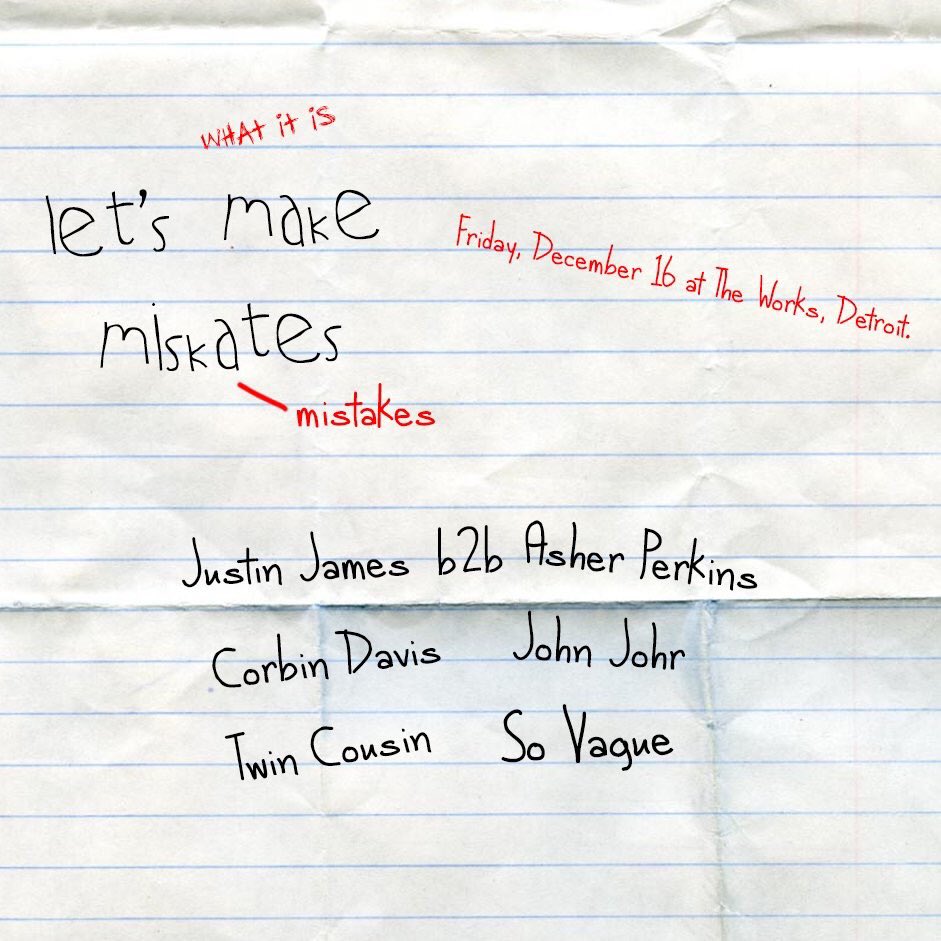 WHAt it iS
let's make
miskates
mistakes
Friday, December 16 at The Works, Detroit.
Justin James b2b Asher Perkins
Corbin Davis John Johr
Twin Cousin So Vague